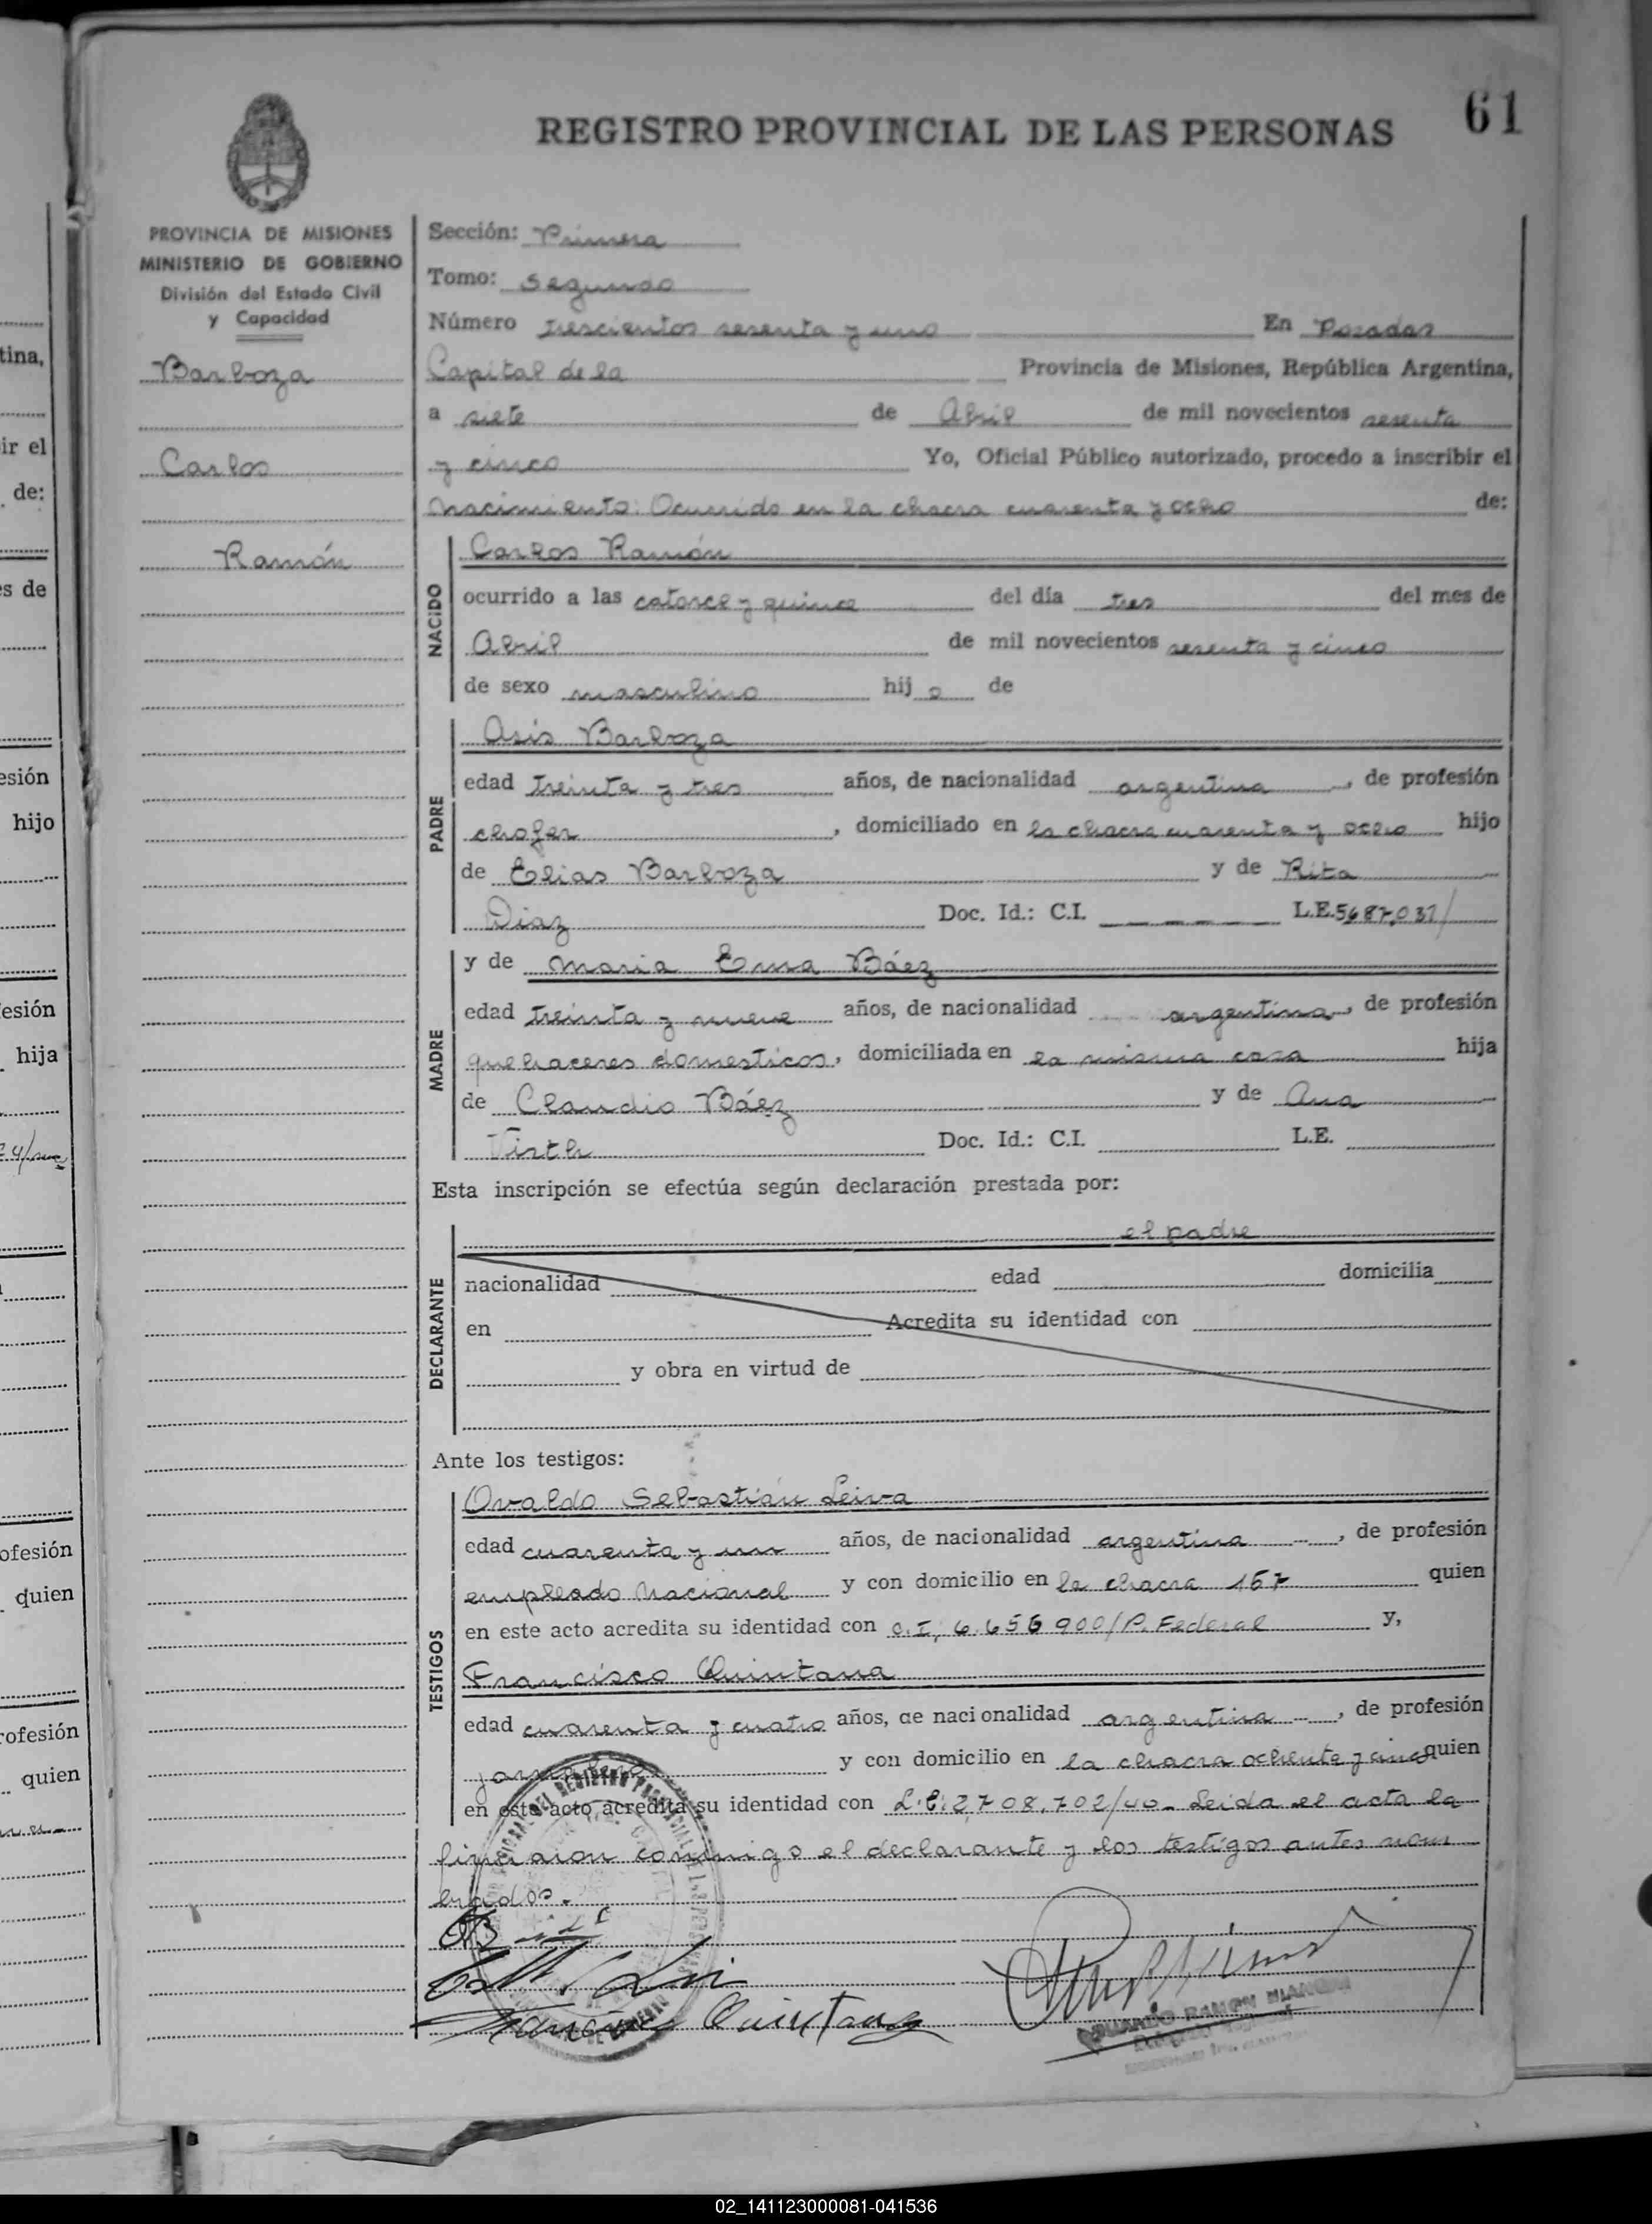 61
REGISTRO PROVINCIAL DE LAS PERSONAS
PROVINCIA DE MISIONES
MINISTERIO DE GOBIERNO
División del Estado Civil
y Capacidad
Barboza
Carlos
Ramón
Sección: Primera
Tomo: Segundo
Número trescientos sesenta y uno En Posadas
Capital de la Provincia de Misiones, República Argentina,
a siete de Abril de mil novecientos sesenta
y cinco Yo, Oficial Público autorizado, procedo a inscribir el
Nacimiento: Ocurrido en la chacra cuarenta y ocho de:
NACIDO
Carlos Ramón
ocurrido a las catorce y quince del día tres del mes de
Abril de mil novecientos sesenta y cinco
de sexo masculino hij o de
PADRE
Asis Barboza
edad treinta y tres años, de nacionalidad argentina, de profesión
chofer, domiciliado en la chacra cuarenta y ocho hijo
de Elias Barboza y de Rita
Diaz Doc. Id.: C.I. L.E. 5687.031/
MADRE
y de Maria Erna Báez
edad treinta y nueve años, de nacionalidad argentina, de profesión
quehaceres domesticos, domiciliada en la misma casa hija
de Claudio Báez y de Ana
Virth Doc. Id.: C.I. L.E.
Esta inscripción se efectúa según declaración prestada por:
DECLARANTE
el padre
nacionalidad edad domicilia
en Acredita su identidad con
y obra en virtud de
Ante los testigos:
TESTIGOS
Ovaldo Sebastián Leiva
edad cuarenta y un años, de nacionalidad argentina, de profesión
empleado Nacional y con domicilio en la chacra 157 quien
en este acto acredita su identidad con C.I. 6.656 900/P. Federal y,
Francisco Quintana
edad cuarenta y cuatro años, de nacionalidad argentina, de profesión
jornalero y con domicilio en la chacra ochenta y cinco quien
en este acto acredita su identidad con L.E. 2,708,702/40_ Leida el acta la
firmaron conmigo el declarante y los testigos antes nom
brados.
Quintana
RAMON
02_141123000081-041536